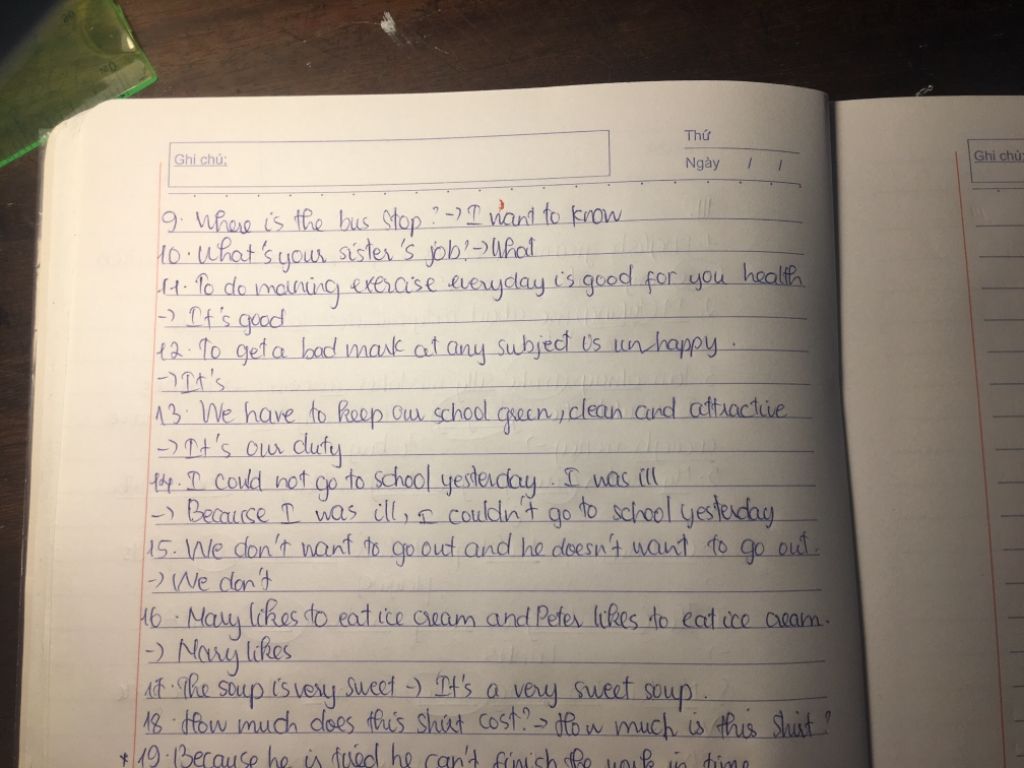 Ghi chú:
Thứ
Ngày / /
Ghi chú:
9. Where is the bus stop? -> I want to know
10. What's your sister's job? -> What
11. To do morning exercise everyday is good for you health
-> It's good
12. To get a bad mark at any subject is unhappy.
-> It's
13. We have to keep our school green, clean and attractive
-> It's our duty
14. I could not go to school yesterday. I was ill
-> Because I was ill, I couldn't go to school yesterday
15. We don't want to go out and he doesn't want to go out.
-> We don't
16. Mary likes to eat ice cream and Peter likes to eat ice cream.
-> Mary likes
17. The soup is very sweet -> It's a very sweet soup.
18. How much does this shirt cost? -> How much is this shirt?
* 19. Because he is tired he can't finish the work in time